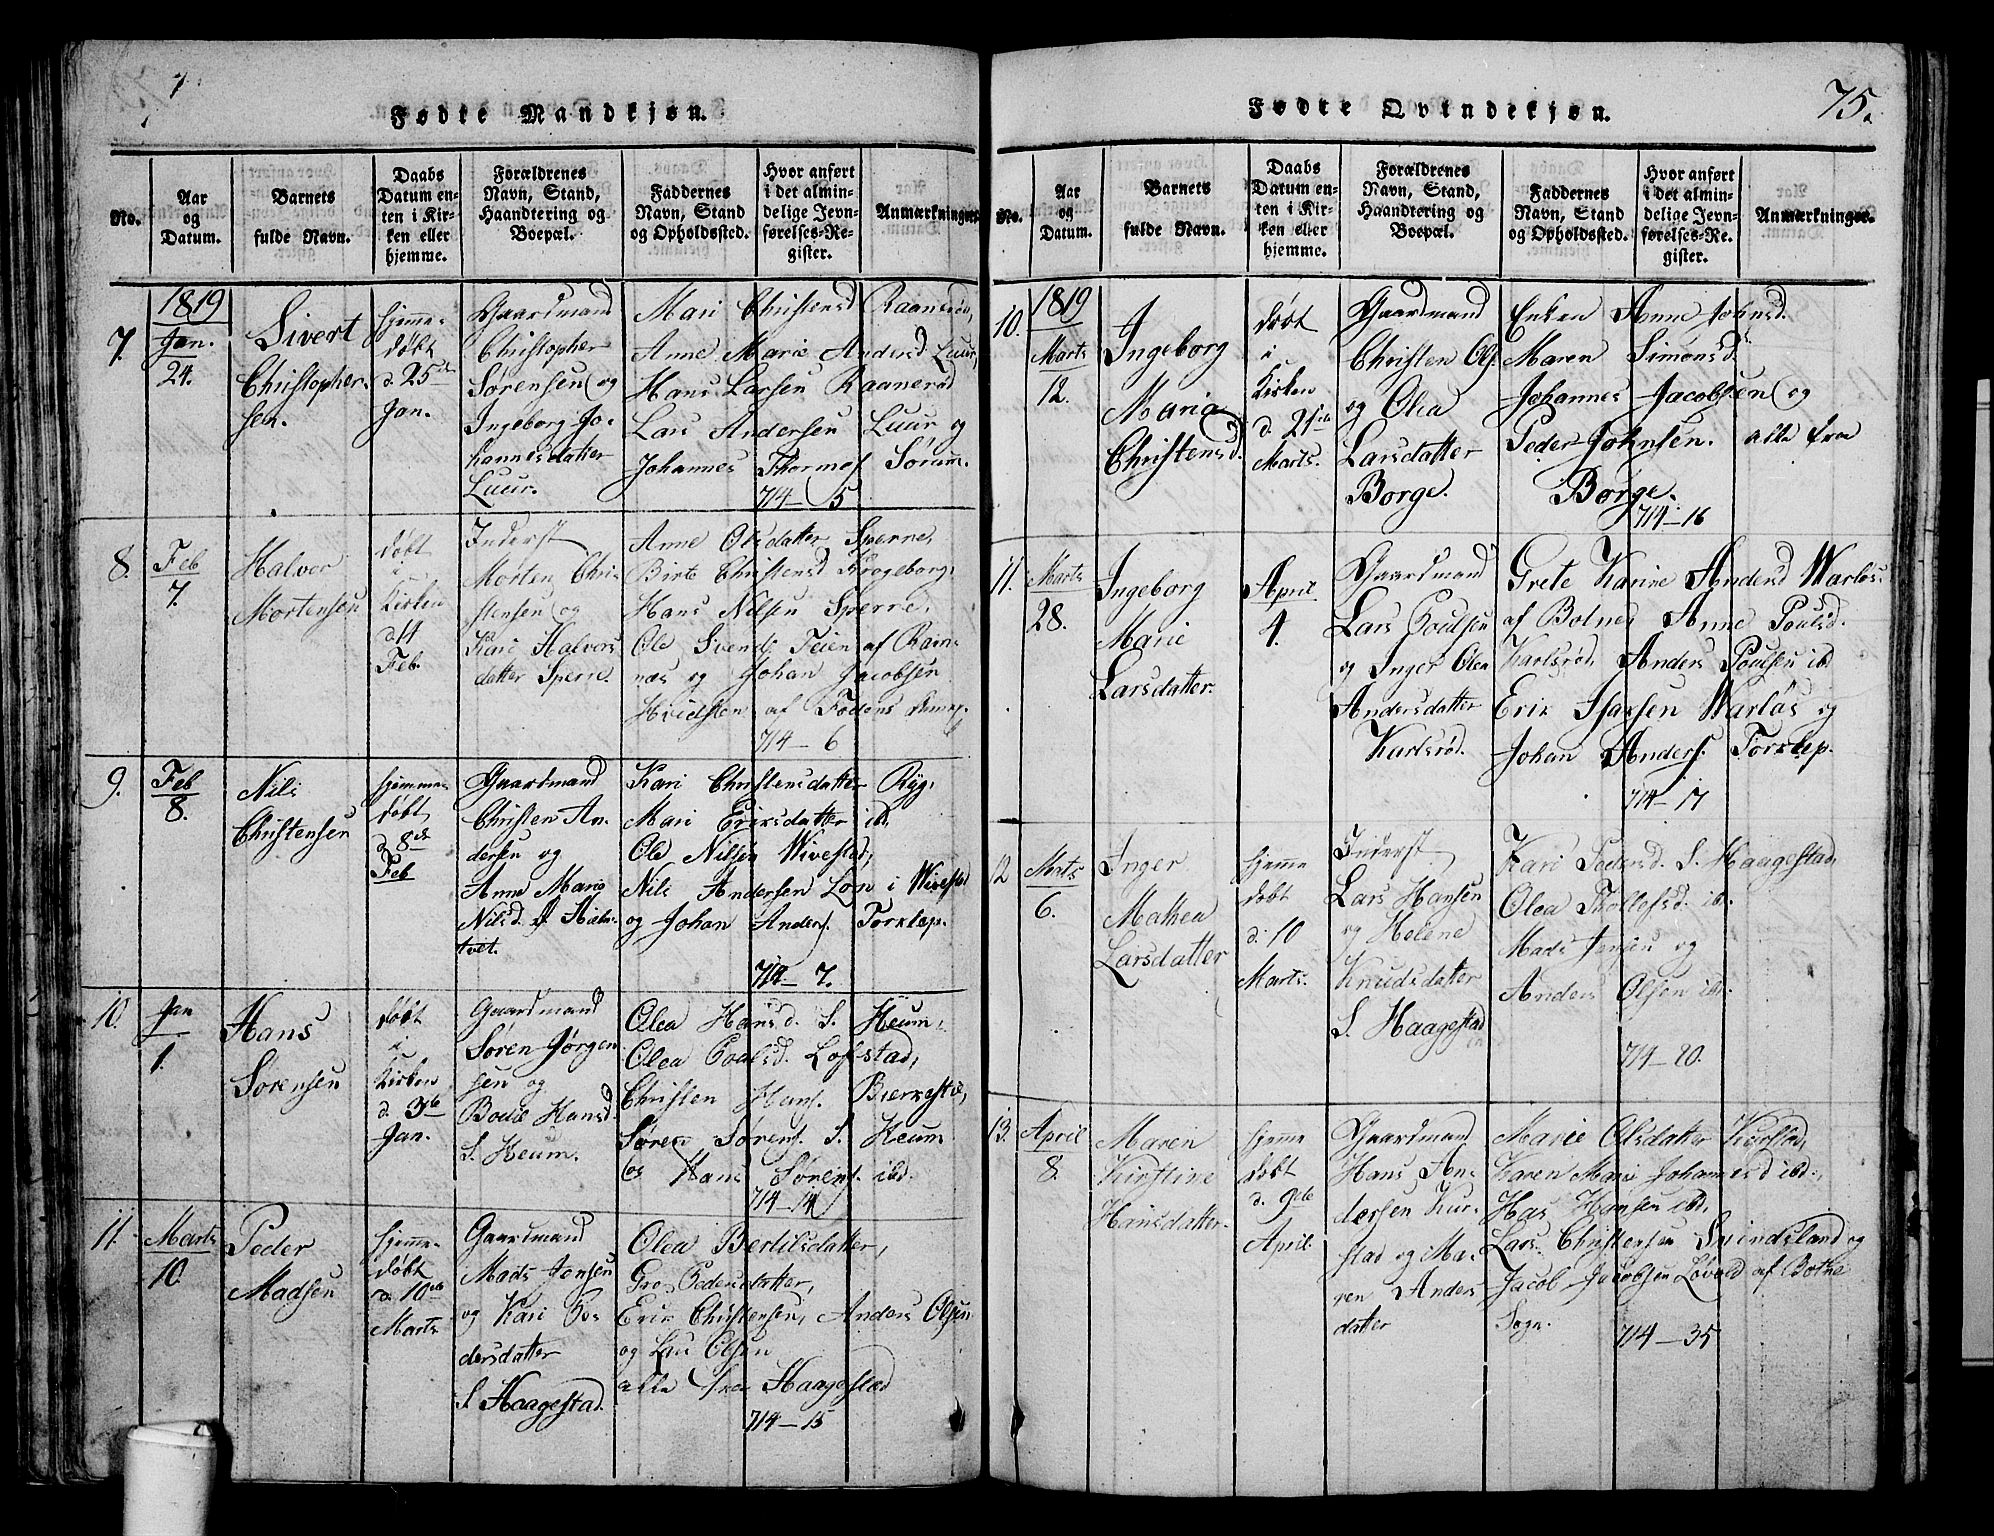 Fødte Mandkjøn.
No.
Aar og Datum.
Barnets fulde Navn.
Daabs Datum enten i Kirken eller hjemme.
Forældrenes Navn, Stand, Haandtering og Boepæl.
Faddernes Navn, Stand og Opholdssted.
Hvor anført i det almindelige Jevnførelses-Register.
Anmærkninger.
7.
1819
Jan.
24.
Sivert
Christopher-
sen.
hjemme-
døbt
d. 25de
Jan.
Gaardmand
Christopher
Sørensen og
Ingeborg Jo-
hannesdatter
Luur.
Mari Christensd Raanerød,
Anne Marie Andersd Luur,
Hans Larsen Raanerød
Lars Andersen Luur og
Johannes Thormos. Sørum.
714-5
8.
Feb
7.
Halvor
Mortensen
døbt
i
Kirken
d 14
Feb.
Inderst
Morten Chri-
stensen og
Kari Halvors
datter Sperre.
Anne Olsdatter Sperre,
Birte Christensd Krogeborg,
Hans Nilsen Sperre,
Ole Svends. Feien af Ram-
næs og Johan Jacobsen
Hvidsten af
714-6
9.
Feb
8.
Nils
Christensen
hjemme-
døbt
d 8de
Feb
Gaardmand
Christen An-
dersen og
Anne Marie
Nilsd.
tvet.
Kari Christensdatter Ryg,
Mari Eriksdatter ib,
Ole Nilsen Wivestad,
Nils Andersen Løn i Wivestad
og Johan Anders. Torklep.
714-7.
10.
Jan
1.
Hans
Sørensen
døbt
i
Kirken
d. 3die
Jan.
Gaardmand
Søren Jørgen
sen og
Bodil Hansd.
S. Heum.
Olea Hansd. S. Heum,
Olea Poulsd. Lofstad,
Christen Hans. Bierkestad,
Søren Sørens. S. Heum
og Hans Sørens. ibd.
714-14
11.
Marts
10.
Peder
Madsen
hjemme-
døbt
d. 10de
Marts
Gaardmand
Mads Jensen
og Kari Pe-
dersdatter
S. Haagestad.
Olea Bertilsdatter,
Gro Pedersdatter,
Erik Christensen, Anders Olsen
og Lars Olsen
alle fra Haagestad
714-15
75.
Fødte Qvindekjøn.
No.
Aar og Datum.
Barnets fulde Navn.
Daabs Datum enten i Kirken eller hjemme.
Forældrenes Navn, Stand, Haandtering og Boepæl.
Faddernes Navn, Stand og Opholdssted.
Hvor anført i det almindelige Jevnførelses-Register.
Anmærkninger.
10.
1819
Marts
12.
Ingeborg
Maria
Christensd.
døbt
i
Kirken
d. 21de
Marts.
Gaardmand
Christen Ols.
og Olea
Larsdatter
Borge.
Enken Anne Johnsd.
Maren Simonsd.
Johannes Jacobsen og
Peder Johnsen. alle fra
Borge.
714-16
11.
Marts
28.
Ingeborg
Marie
Larsdatter.
April
4.
Gaardmand
Lars Poulsen
og Inger Olea
Andersdatter
Karlsrød.
Grete Karine Andersd Warløs
af Botne, Anne Poulsd.
Karlsrød, Anders Poulsen ibd
Erik Isaksen Warløs og
Johan Anders. Torklep.
714-17
12
Marts
6.
Inger
Mathea
Larsdatter
hjemme
døbt
d. 10
Marts.
Inderst
Lars Hansen
og Helene
Knudsdatter
S. Haagestad
Kari Pedersd. S. Haagestad,
Olea Thollefsd. ib.
Mads Jensen og
Anders Olsen ibd.
714-20.
13.
April
8.
Maren
Kirstine
Hansdatter.
hjemme
døbt
d. 9de
April.
Gaardmand
Hans An-
dersen Kur-
stad og Ma-
ren Anders
datter
Marie Olsdatter Kurstad,
Karen Marie Johannesd ibd.,
Hans Hansen ibd,
Lars Christensen Svindsland og
Jacob Jacobsen Løvold af Botne
Sogn.
714-35